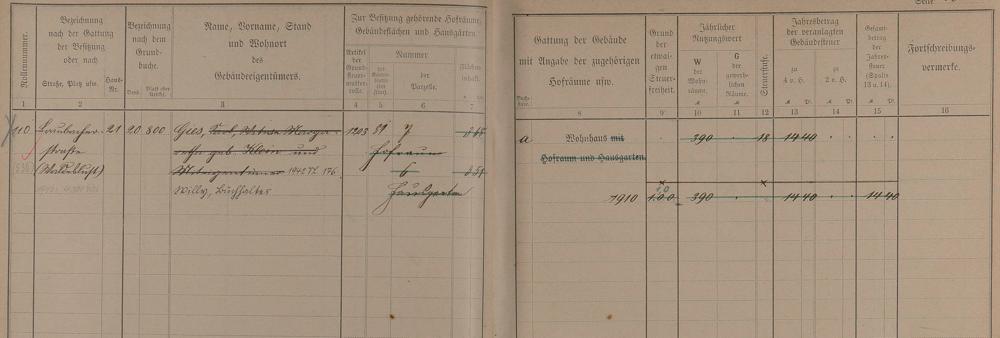 Seite
Rollennummer.
Bezeichnung
nach der Gattung
der Besitzung
oder nach
Straße, Platz usw.
Haus-
Nr.
Bezeichnung
nach dem
Grund-
buche.
Band.
Blatt oder
Artikel.
Name, Vorname, Stand
und Wohnort
des
Gebäudeeigentümers.
Zur Besitzung gehörende Hofräume,
Gebäudeflächen und Hausgärten.
Artikel
der
Grund-
steuer-
mutter-
rolle.
Nummer
der
Parzelle.
Flächen-
inhalt.
1 2 3 4 5 6 7
110. Laubacher- 21 20 800. Gies, 1203 81 7
straße Hofraum
(Waldeslust) 6
Hausgarten
Willy, Buchhalter
Buch-
stabe.
Gattung der Gebäude
mit Angabe der zugehörigen
Hofräume usw.
Grund
der
etwai-
gen
Steuer-
freiheit.
Jährlicher
Nutzungswert
W
der
Wohn-
räume.
G
der
gewerb-
lichen
Räume.
Steuerstufe.
Jahresbetrag
der veranlagten
Gebäudesteuer
zu
4 v. H.
zu
2 v. H.
Gesamt-
betrag
der
Jahres-
steuer
(Spalte
13 u. 14).
Fortschreibungs-
vermerke.
8 9 10 11 12 13 14 15 16
a Wohnhaus mit 390 18 14 40
Hofraum und Hausgarten.
1910 100 390 14 40 14 40